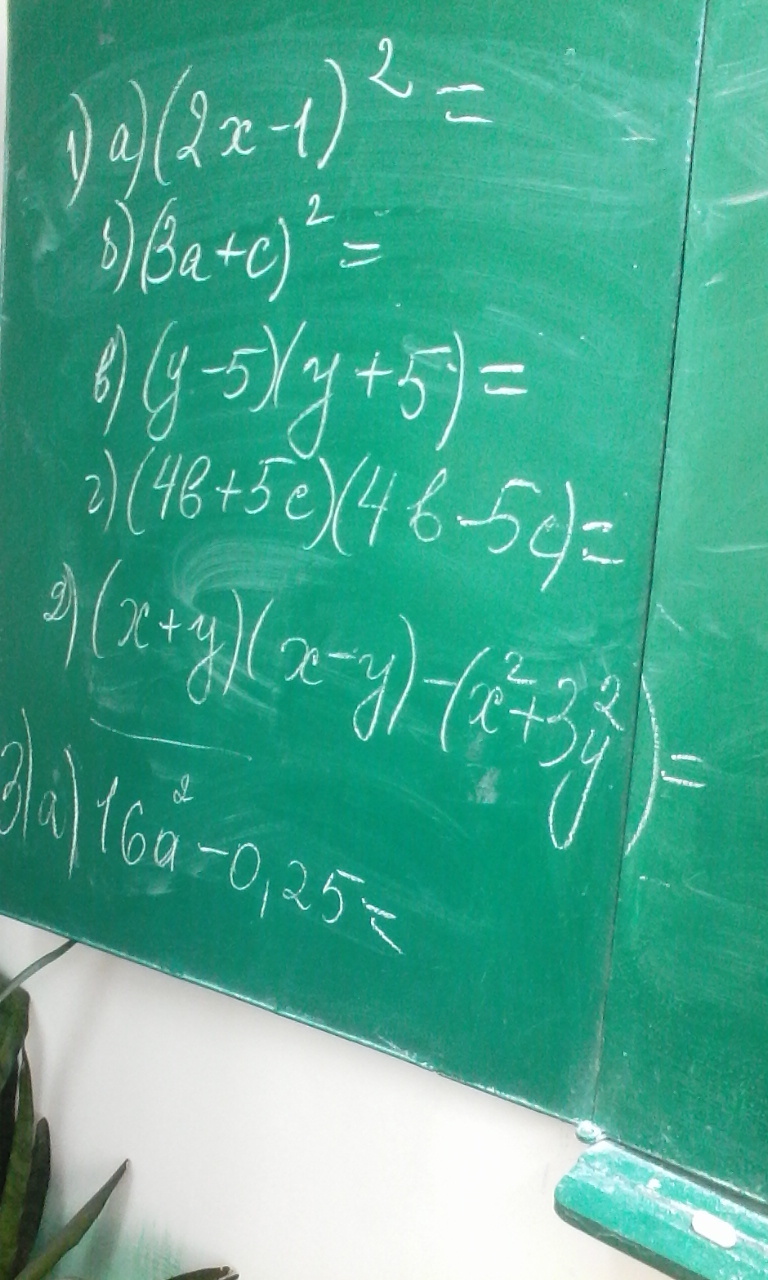 1) а) (2x-1)² =
б) (3a+c)² =
в) (y-5)(y+5) =
г) (4b+5c)(4b-5c) =
2) (x+y)(x-y)-(x²+3y²) =
3) а) 16a²-0,25 =